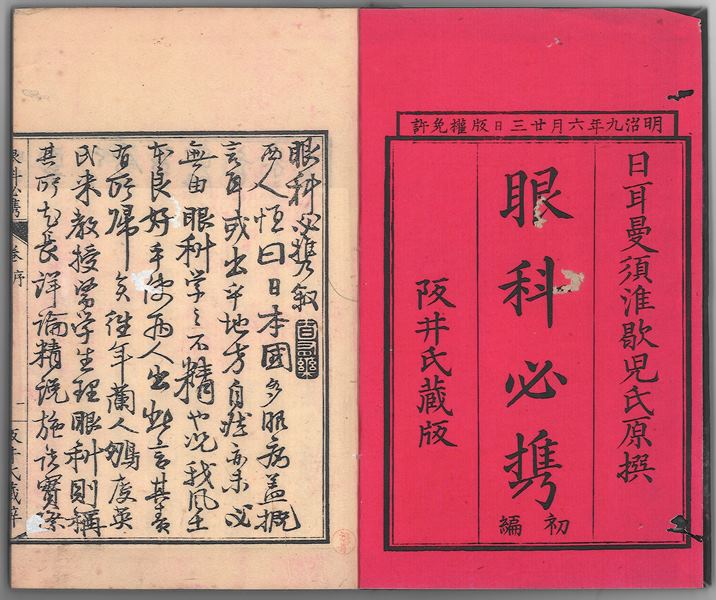 明治九年六月廿三日版權免許
日耳曼須淮歇児氏原撰
眼科必携
初編
阪井氏蔵版
眼科必携叙
西人恒曰日本國多眼病盖概
言耳或出乎地方自然亦未必
無由眼科学之不精也况我風土
本良好乎使西人出此言其責
有所歸矣往年蘭人度英
氏来教授醫学生理眼科則稱
其所尤長詳論精説施諸實際
眼科必携 巻序 一 阪井氏蔵梓